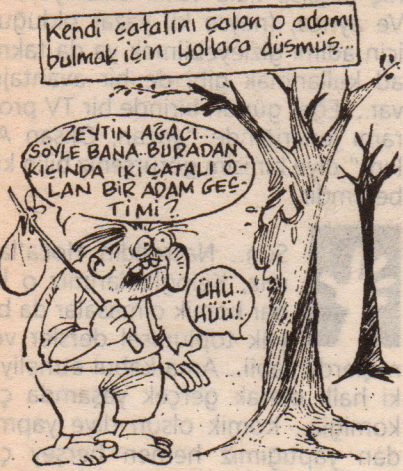 Kendi çatalını çalan o adamı
bulmak için yollara düşmüş...
ZEYTİN AĞACI...
SÖYLE BANA BURADAN
KIÇINDA İKİ ÇATALI O-
LAN BİR ADAM GEÇ-
TİMİ?
ÜHÜ
HÜÜ!